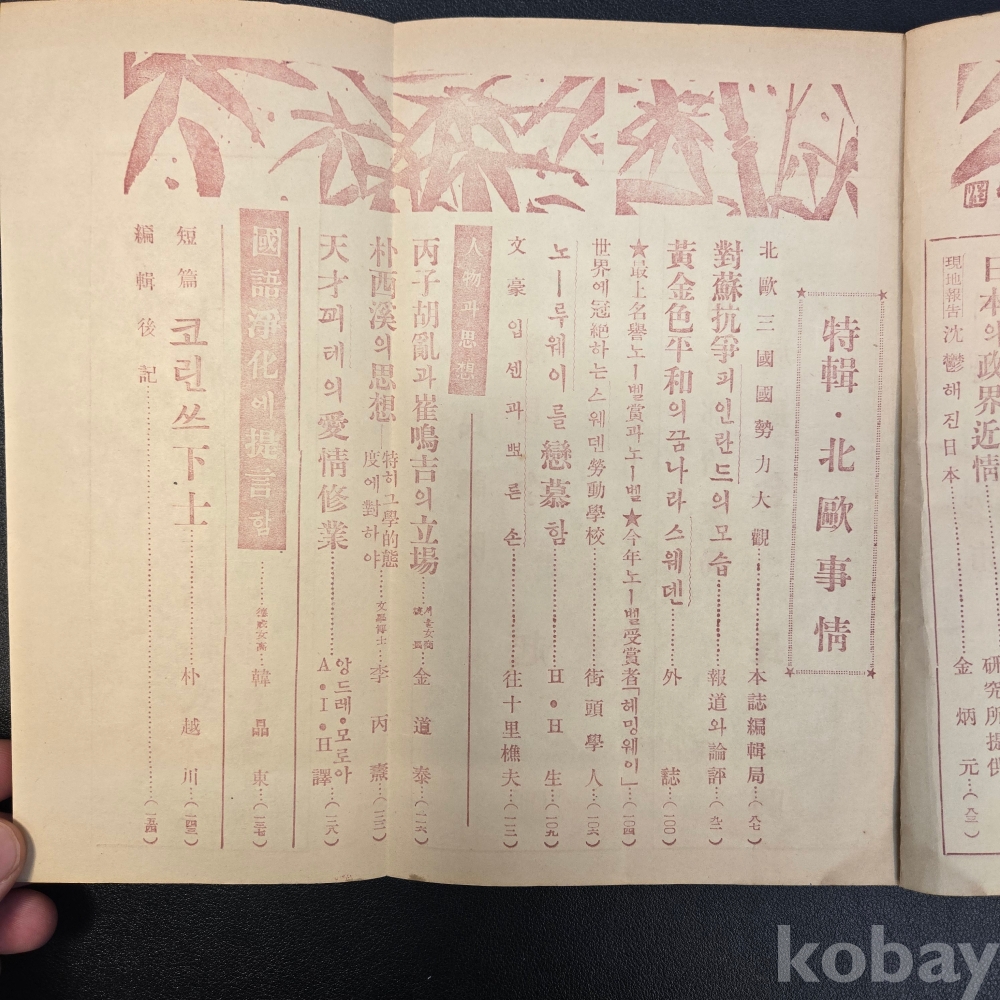 日本의政界近情
現地報告 沈鬱해진日本
研究所提供
金炳元…(八三)
特輯・北歐事情
北歐三國國勢力大觀…………本誌編輯局…(八七)
對蘇抗爭피인란드의모습…………報道와論評…(九二)
黃金色平和의꿈나라스웨덴…………外誌…(一〇〇)
★最上名譽노ー벨賞과노ー벨★今年노ー벨受賞者「헤밍웨이」…(一〇四)
世界에冠絶하는스웨덴勞動學校…………街頭學人…(一〇六)
노ー루웨이를戀慕함…………H・H生…(一〇九)
文豪입센과뾰른손…………往十里樵夫…(一一二)
人物과思想
丙子胡亂과崔鳴吉의立場……서울女商 金道泰…(一一六)
朴西溪의思想 特히그學的態度에對하야……文學博士 李丙燾…(一二二)
天才꾀테의愛情修業……앙드레・모로아
A・I・H譯…(一二八)
國語淨化에提言함……德成女高 韓晶東…(一三七)
短篇 코린쓰下士…………朴越川…(一四三)
編輯後記…………(一五四)
kobay